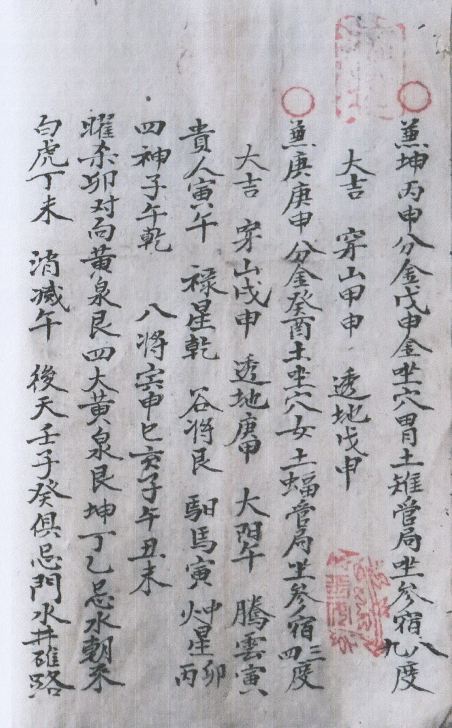 〇兼坤丙申分金戊申金坐穴胃土雉營局坐參宿八九度
大吉 穿山甲申 透地戊申
〇兼庚庚申分金癸酉土坐穴女土蝠營局坐參宿三四度
大吉 穿山戊申 透地庚申 大陽午 騰雲寅
貴人寅午 祿星乾 谷將艮 馹馬寅 火星卯丙
四神子午乾 八將寅申巳亥子午丑未
曜杀卯对向黃泉艮四大黃泉艮坤丁乙忌水朝來
白虎丁未 消滅午 後天壬子癸俱忌門水井碓路